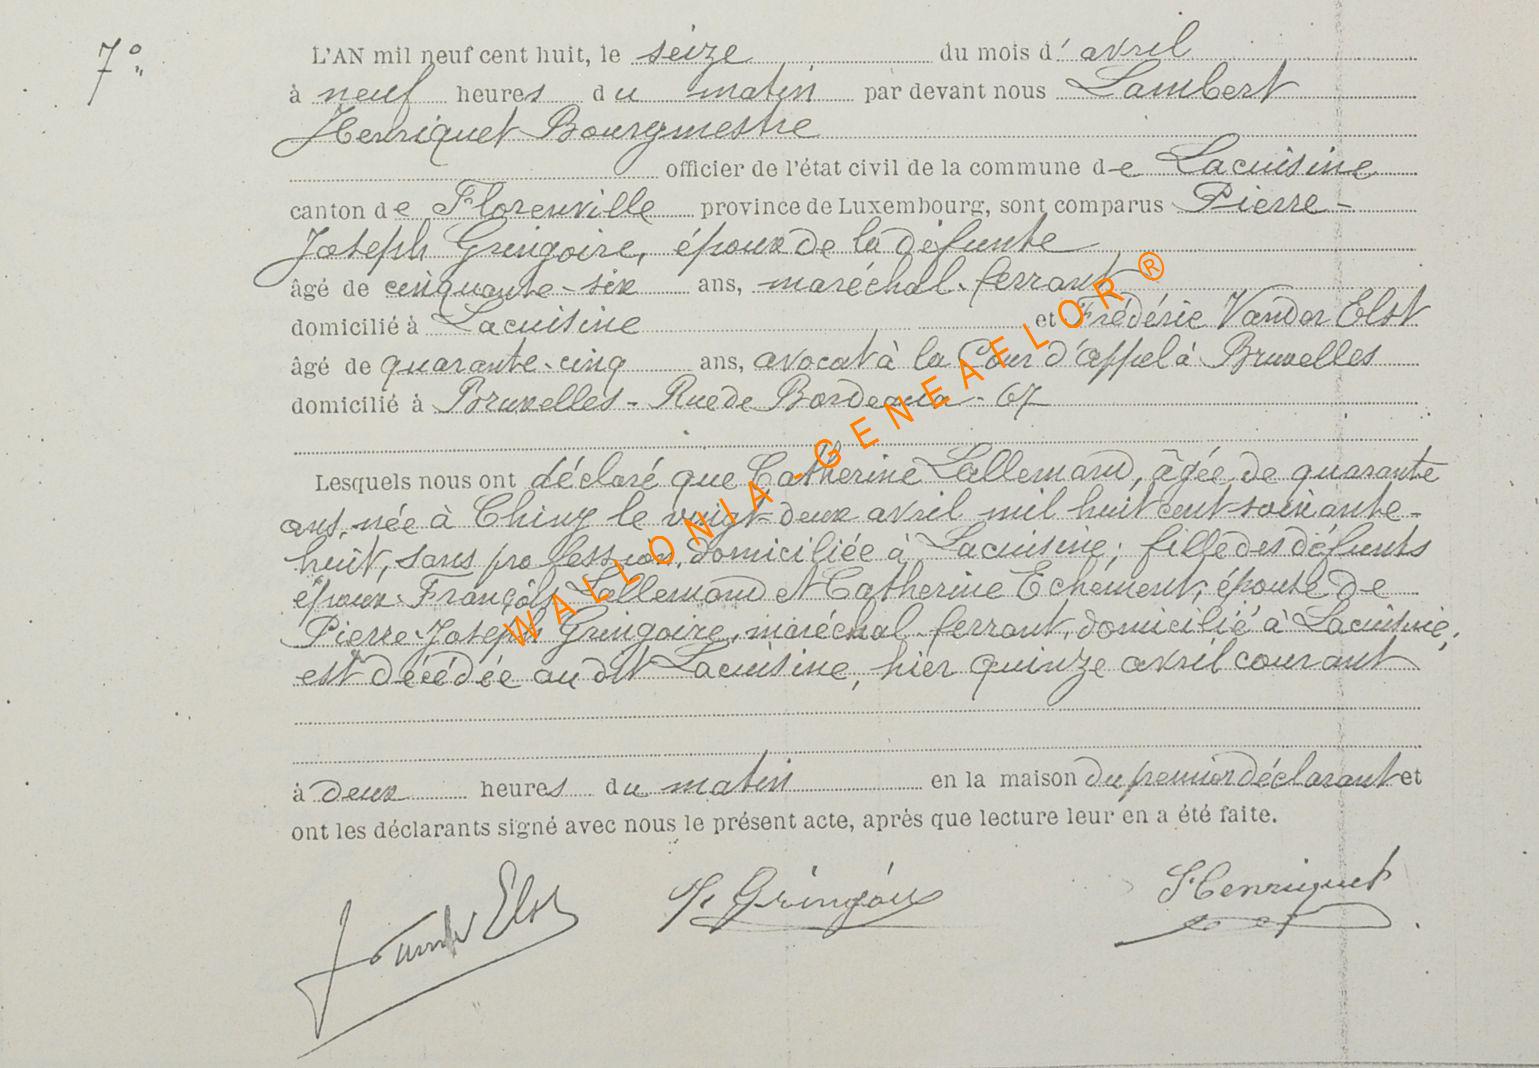 7°
L'AN mil neuf cent huit, le seize du mois d'avril
à neuf heures du matin par devant nous Lambert
Henriquet Bourgmestre
officier de l'état civil de la commune de Lacuisine
canton de Florenville province de Luxembourg, sont comparus Pierre-
Joseph Gringoire, époux de la défunte
âgé de cinquante-six ans, maréchal-ferrant
domicilié à Lacuisine et Frédéric Vander Elst
âgé de quarante-cinq ans, avocat à la Cour d'appel à Bruxelles
domicilié à Bruxelles - Rue de Bordeaux - 67
Lesquels nous ont déclaré que Catherine Lallemand, âgée de quarante
ans, née à Chiny le vingt-deux avril mil huit cent soixante-
huit, sans profession, domiciliée à Lacuisine; fille des défunts
époux François Lallemand et Catherine Echement, épouse de
Pierre-Joseph Gringoire, maréchal-ferrant, domicilié à Lacuisine;
est décédée au dit Lacuisine, hier quinze avril courant
à deux heures du matin en la maison du premier déclarant et
ont les déclarants signé avec nous le présent acte, après que lecture leur en a été faite.
Vander Elst Gringoire Henriquet
WALLONIA-GENEAFELOR®